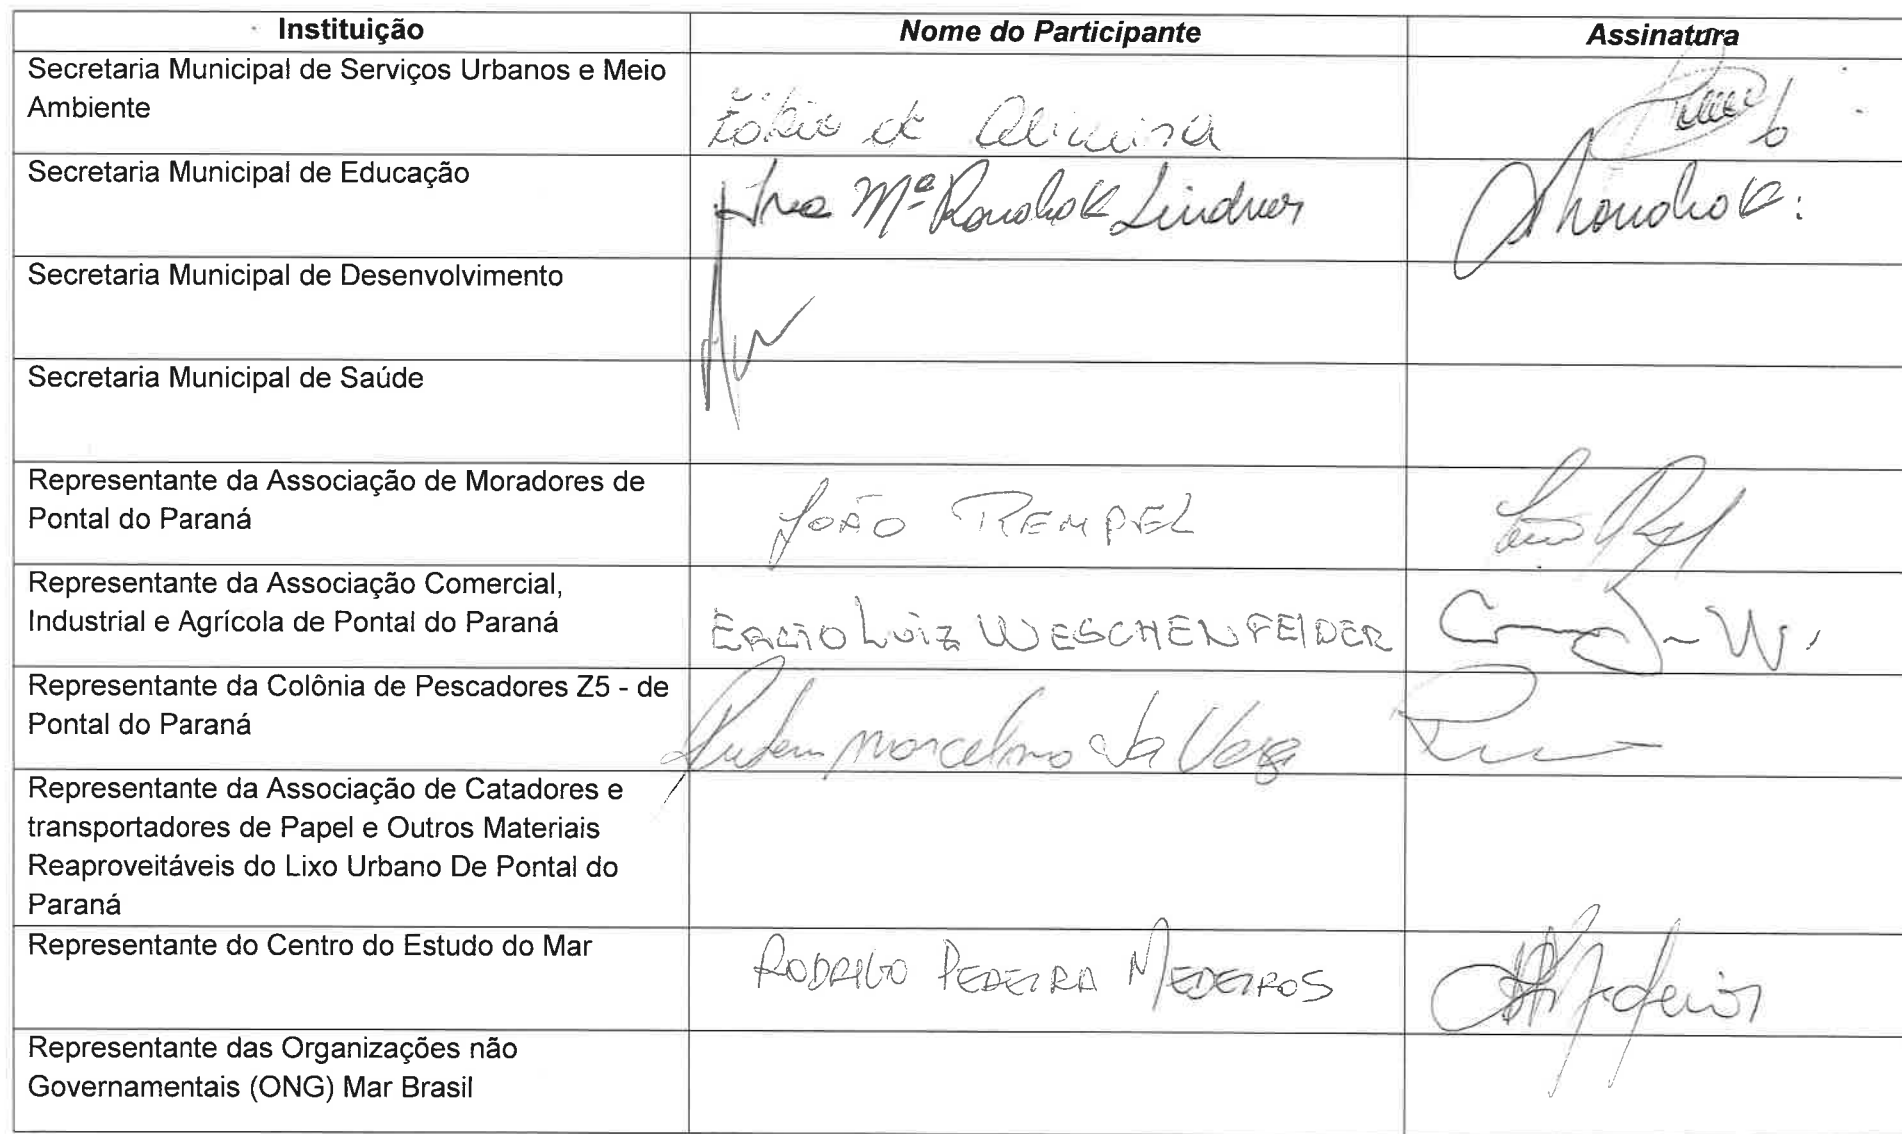 Instituição Nome do Participante Assinatura
Secretaria Municipal de Serviços Urbanos e Meio
Ambiente
Fábio de Oliveira
Secretaria Municipal de Educação
Mª Lindner
Secretaria Municipal de Desenvolvimento
Secretaria Municipal de Saúde
Representante da Associação de Moradores de
Pontal do Paraná
JOÃO REMPEL
Representante da Associação Comercial,
Industrial e Agrícola de Pontal do Paraná
LUIZ WESCHENFELDER
Representante da Colônia de Pescadores Z5 - de
Pontal do Paraná
Marcelino da Veiga
Representante da Associação de Catadores e
transportadores de Papel e Outros Materiais
Reaproveitáveis do Lixo Urbano De Pontal do
Paraná
Representante do Centro do Estudo do Mar
RODRIGO PEREIRA MEDEIROS
Representante das Organizações não
Governamentais (ONG) Mar Brasil